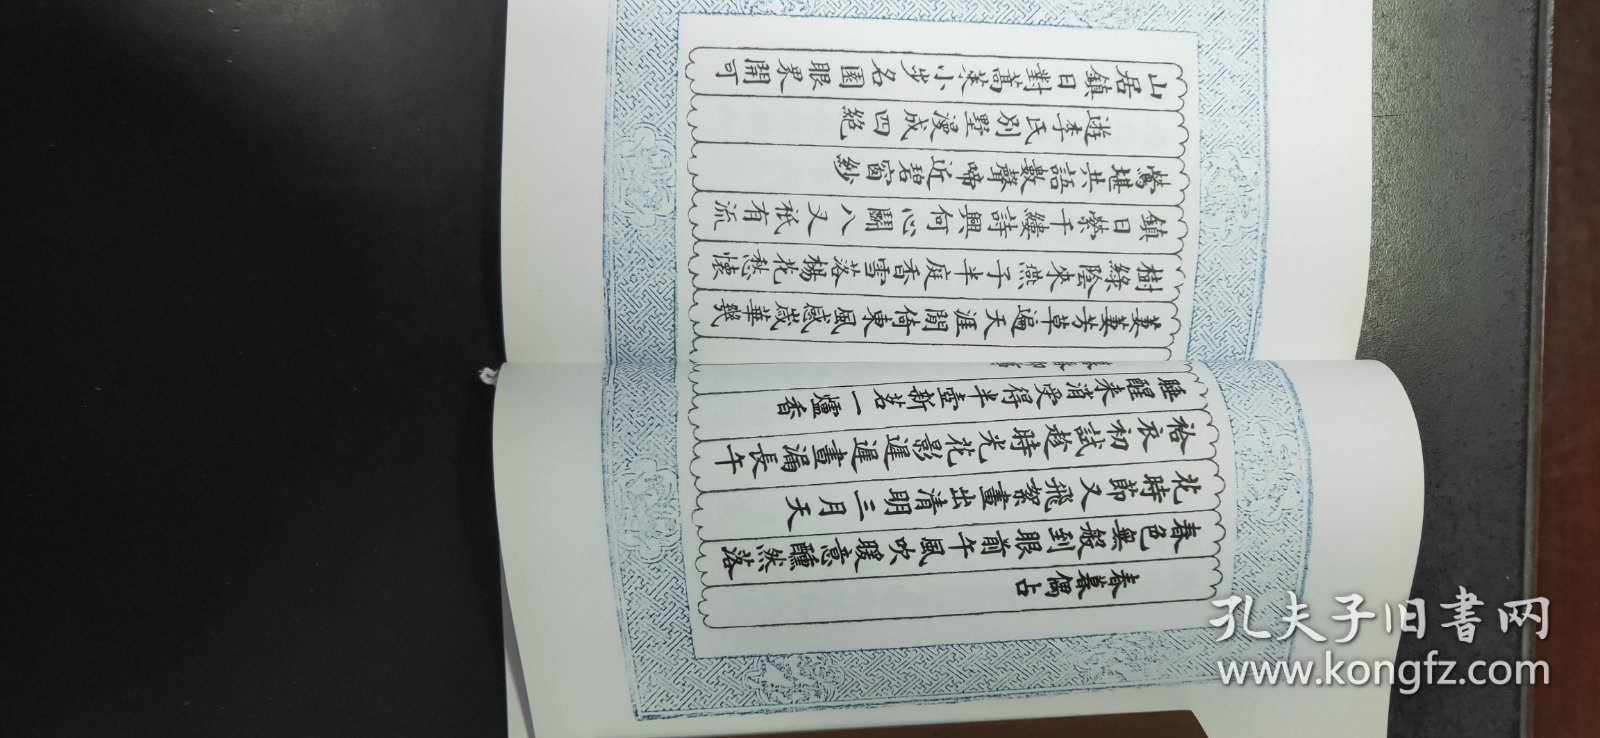 春暮偶占
春色無般到眼前午風吹暖意醺然落
花時節又飛絮畫出清明三月天
袷衣初試趁時光花影遲遲晝漏長午
睡醒來消受得半壺新茗一爐香
萋萋芳草遍天涯閒倚東風感歲華幾
樹綠陰來燕子半庭香雪落楊花愁懷
鎮日縈千縷詩興何心鬭八叉祇有流
鶯堪共語數聲啼近碧窗紗
遊李氏別墅漫成四絕
山居鎮日對蒿萊小步名園眼界開可
孔夫子旧書网
www.kongfz.com